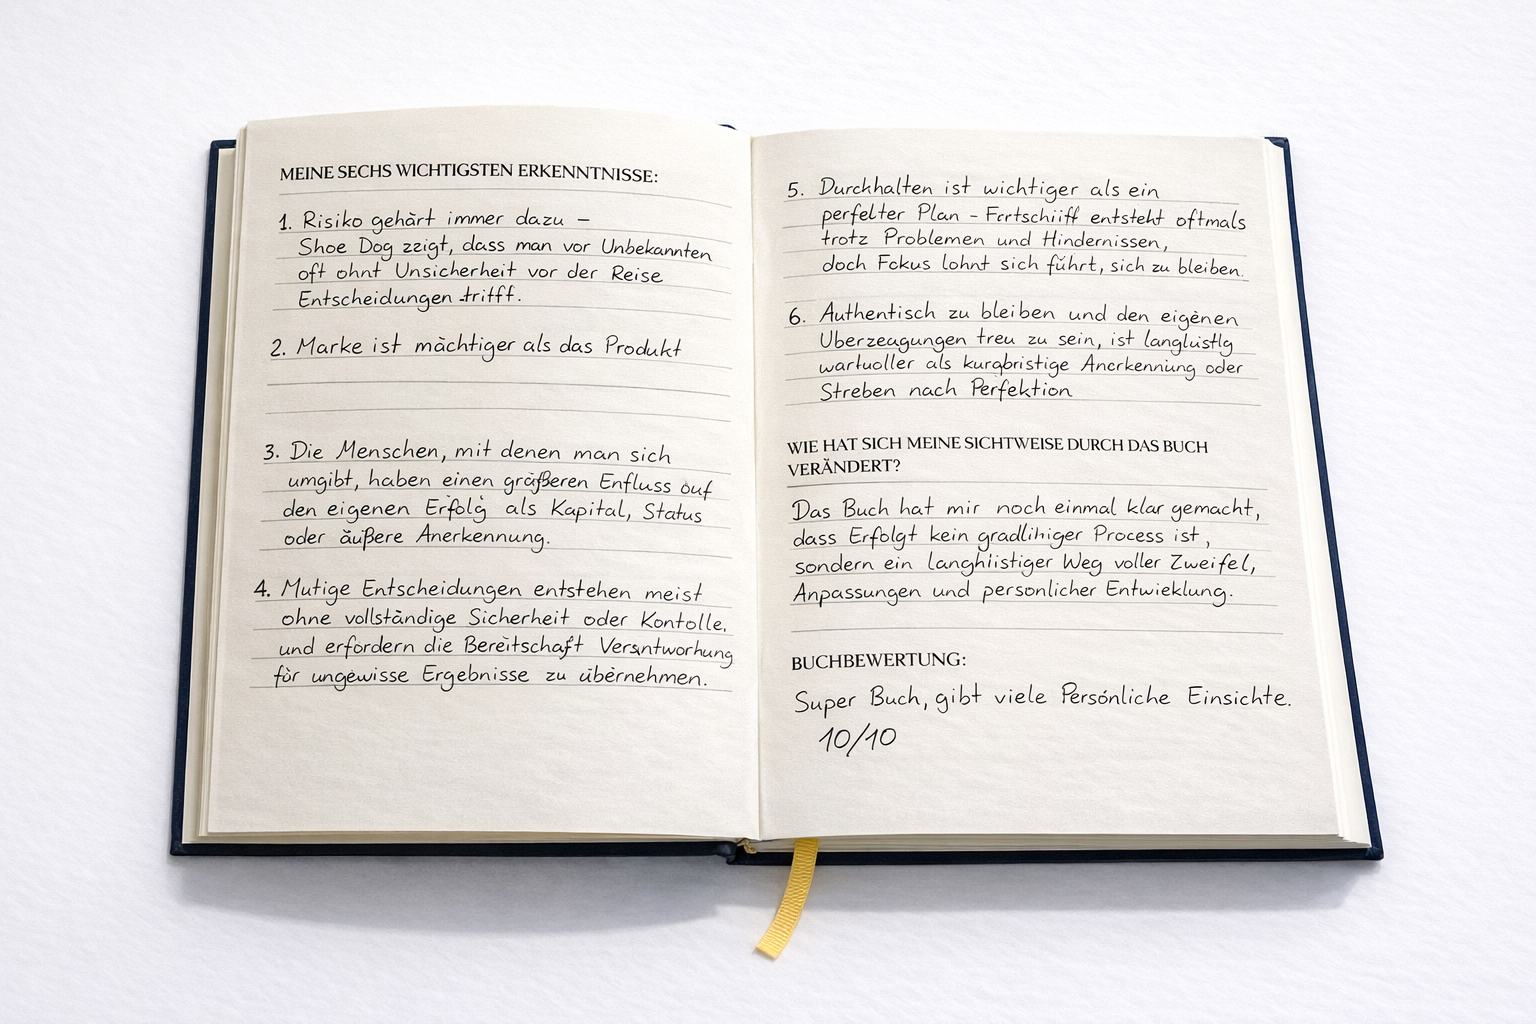 MEINE SECHS WICHTIGSTEN ERKENNTNISSE:
1. Risiko gehàrt immer dazu –
Shoe Dog zzigt, dass man vor Unbekannten
oft ohnt Unsicherheit vor der Reise
Entscheidungen triff.
2. Marke ist màchtiger als das Produkt
3. Die Menschen, mit denen man sich
umgibt, haben einen gräßeren Enfluss auf
den eigenen Erfolg als Kapital, Status
oder äußere Anerkennung.
4. Mutige Entscheidungen entstehen meist
ohne vollständige Sicherheit oder Kontolle,
und erfordern die Bereitschaft Verantworhung
für ungewisse Ergebnisse zu übernehmen.
5. Durchhalten ist wichtiger als ein
perfelter Plan – Fertschiiff entsteht oftmals
trotz Problemen und Hindernissen,
doch Fokus lohnt sich führt, sich zu bleiben.
6. Authentisch zu bleiben und den eigènen
Uberzeagungen treu zu sein, ist langlüstlg
wartuoller als kurqbristige Ancrkennung oder
Streben nach Perfektion
WIE HAT SICH MEINE SICHTWEISE DURCH DAS BUCH
VERÄNDERT?
Das Buch hat mir noch einmal klar gemacht,
dass Erfolgt kein gradlihiger Process ist,
sondern ein langhiistiger Weg voller Zweifel,
Anpassungen und personlicher Entwieklung.
BUCHBEWERTUNG:
Super Buch, gibt viele Persónliche Einsichte.
10/10